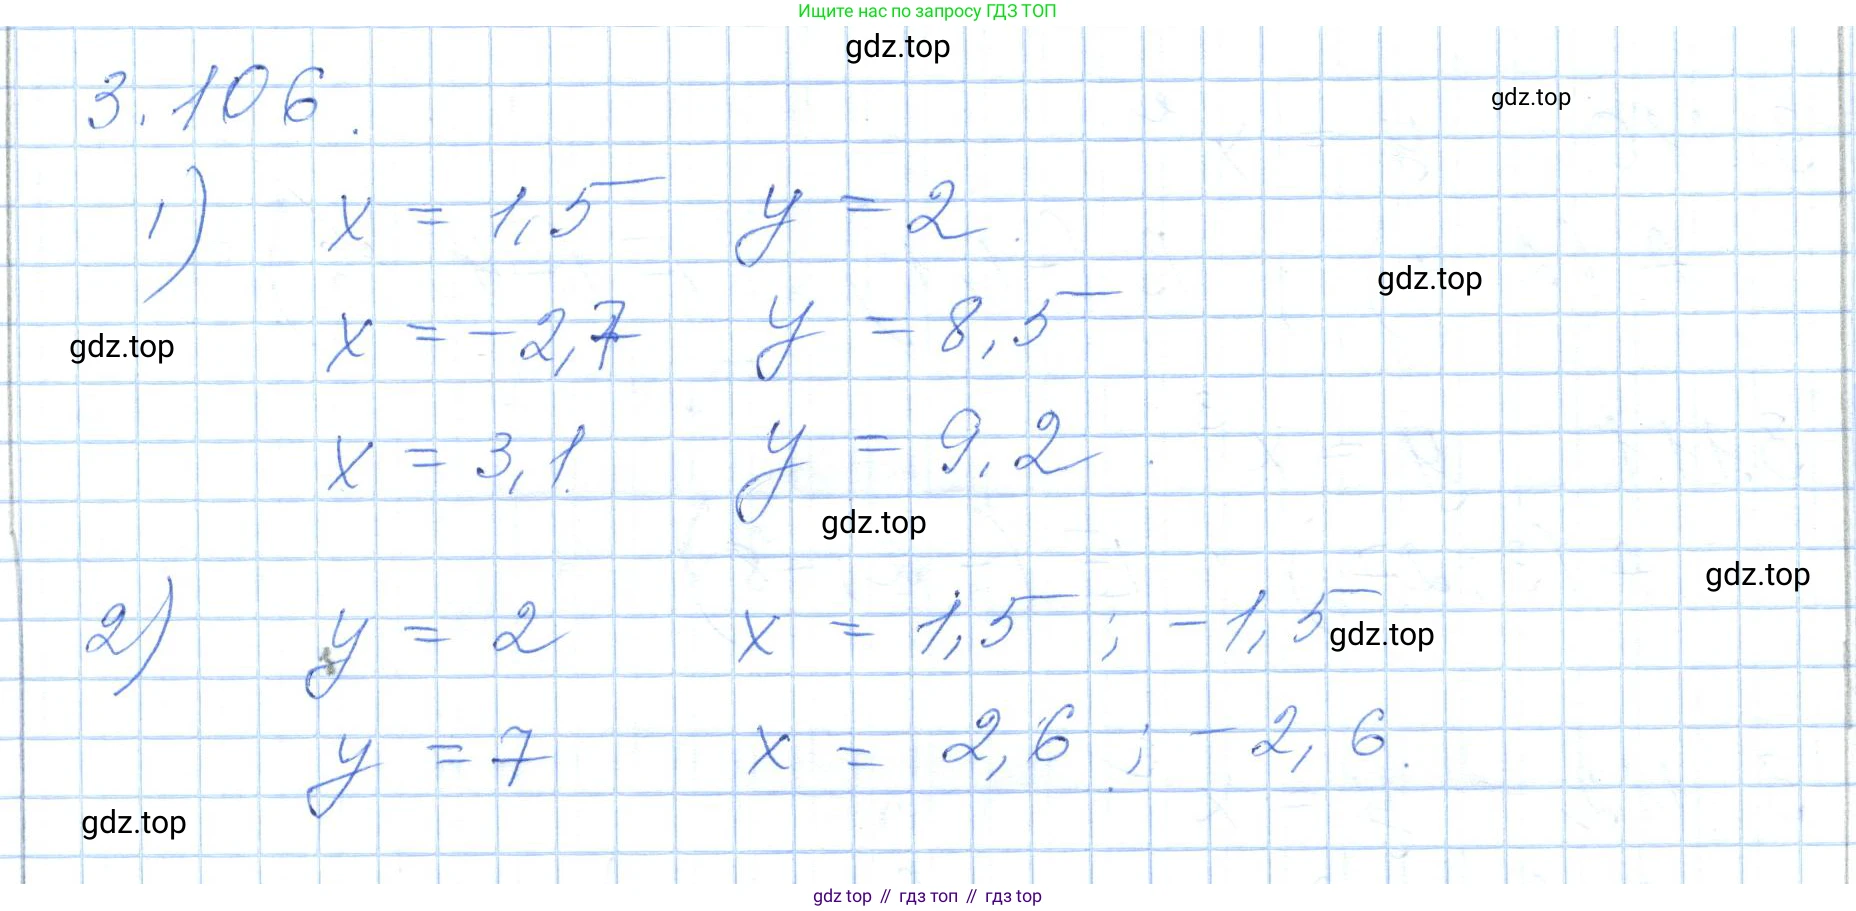 Ищите нас по запросу ГДЗ ТОП
gdz.top
3.106.
gdz.top
1) x = 1,5 y = 2.
gdz.top
x = -2,7 y = 8,5
gdz.top
x = 3,1. y = 9,2.
gdz.top
gdz.top
2) y = 2 x = 1,5 ; -1,5
gdz.top
y = 7 x = 2,6 ; -2,6.
gdz.top
gdz top // гдз топ // гдз top